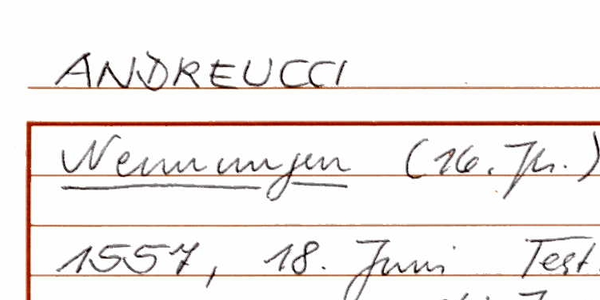 ANDREUCCI
Nennungen (16. Jh.)
1557, 18. Juni Test.